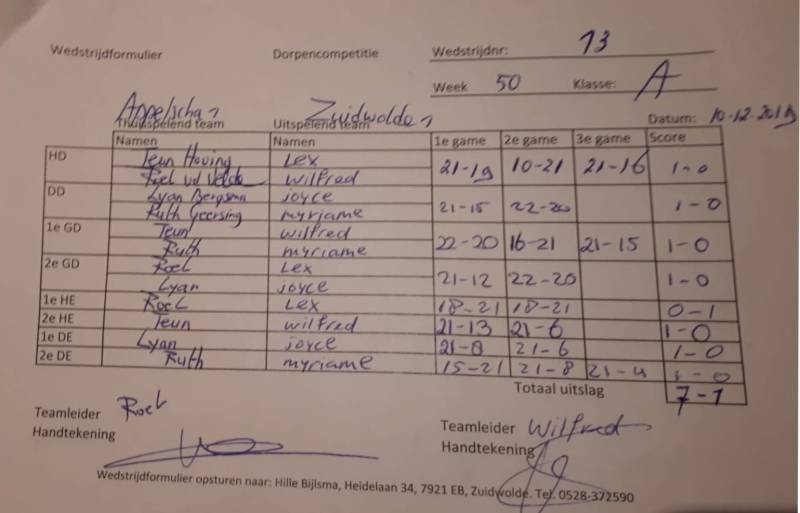 Wedstrijdformulier Dorpencompetitie Wedstrijdnr: 13
Week 50 Klasse: A
Appelscha 1 Zuidwolde 1 Datum: 10-12-2019
Thuisspelend team Uitspelend team
Namen Namen 1e game 2e game 3e game Score
HD Teun Hoving Lex 21-19 10-21 21-16 1-0
Roel vd Velde Wilfred
DD Lyan Bergsma Joyce 21-15 22-20 1-0
Ruth Geersing myriame
1e GD Teun Wilfred 22-20 16-21 21-15 1-0
Ruth myriame
2e GD Roel Lex 21-12 22-20 1-0
Lyan Joyce
1e HE Roel Lex 18-21 18-21 0-1
2e HE Teun Wilfred 21-13 21-6 1-0
1e DE Lyan Joyce 21-8 21-6 1-0
2e DE Ruth myriame 15-21 21-8 21-4 1-0
Totaal uitslag 7-1
Teamleider Roel Teamleider Wilfred
Handtekening Handtekening
Wedstrijdformulier opsturen naar: Hille Bijlsma, Heidelaan 34, 7921 EB, Zuidwolde. Tel. 0528-372590